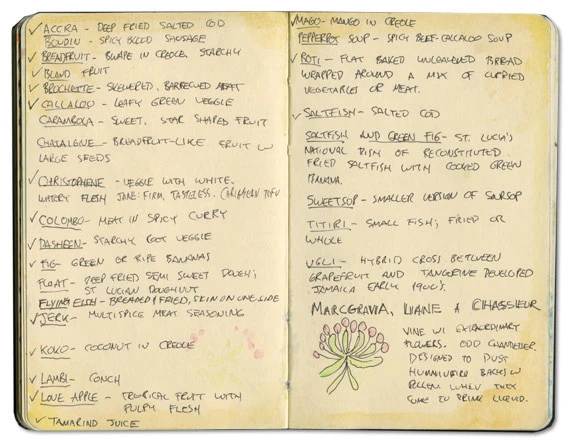 ✓ ACCRA - DEEP FRIED SALTED COD
BOUDIN - SPICY BLOOD SAUSAGE
✓ BREADFRUIT - BWAPE IN CREOLE, STARCHY
✓ BLAND FRUIT
✓ BROCHETTE - SKEWERED, BARBECUED MEAT
✓ CALLALOU - LEAFY GREEN VEGGIE
CARAMBOLA - SWEET, STAR SHAPED FRUIT
CHATAIGNE - BREADFRUIT-LIKE FRUIT W
LARGE SEEDS
✓ CHRISTOPHENE - VEGGIE WITH WHITE,
WATERY FLESH JANE: FIRM, TASTELESS. CARIBBEAN TOFU
✓ COLOMBO - MEAT IN SPICY CURRY
✓ DASHEEN - STARCHY ROOT VEGGIE
✓ FIG - GREEN OR RIPE BANANAS
FLOAT - DEEP FRIED SEMI SWEET DOUGH;
ST LUCIAN DOUGHNUT
FLYING FISH - BREADED & FRIED, SKIN ON ONE SIDE
✓ JERK - MULTISPICE MEAT SEASONING
✓ KOKO - COCONUT IN CREOLE
✓ LAMBI - CONCH
✓ LOVE APPLE - TROPICAL FRUIT WITH
PULPY FLESH
✓ TAMARIND JUICE
✓ MAGO - MANGO IN CREOLE
PEPPERPOT SOUP - SPICY BEEF-CALLALOO SOUP
✓ ROTI - FLAT BAKED UNLEAVENED BREAD
WRAPPED AROUND A MIX OF CURRIED
VEGETABLES OR MEAT.
✓ SALTFISH - SALTED COD
SALTFISH AND GREEN FIG - ST. LUCIA'S
NATIONAL DISH OF RECONSTITUTED
FRIED SALTFISH WITH COOKED GREEN
BANANA.
SWEETSOP - SMALLER VERSION OF SOURSOP
TITIRI - SMALL FISH; FRIED OR
WHOLE
UGLI - HYBRID CROSS BETWEEN
GRAPEFRUIT AND TANGERINE DEVELOPED
JAMAICA EARLY 1900's.
MARCGRAVIA, LIANE A CHASSEUR
VINE W/ EXTRAORDINARY
FLOWERS. ODD CHANDELIER.
DESIGNED TO DUST
HUMMINGBIRD BACKS W
POLLEN WHEN THEY
COME TO DRINK LIQUID.